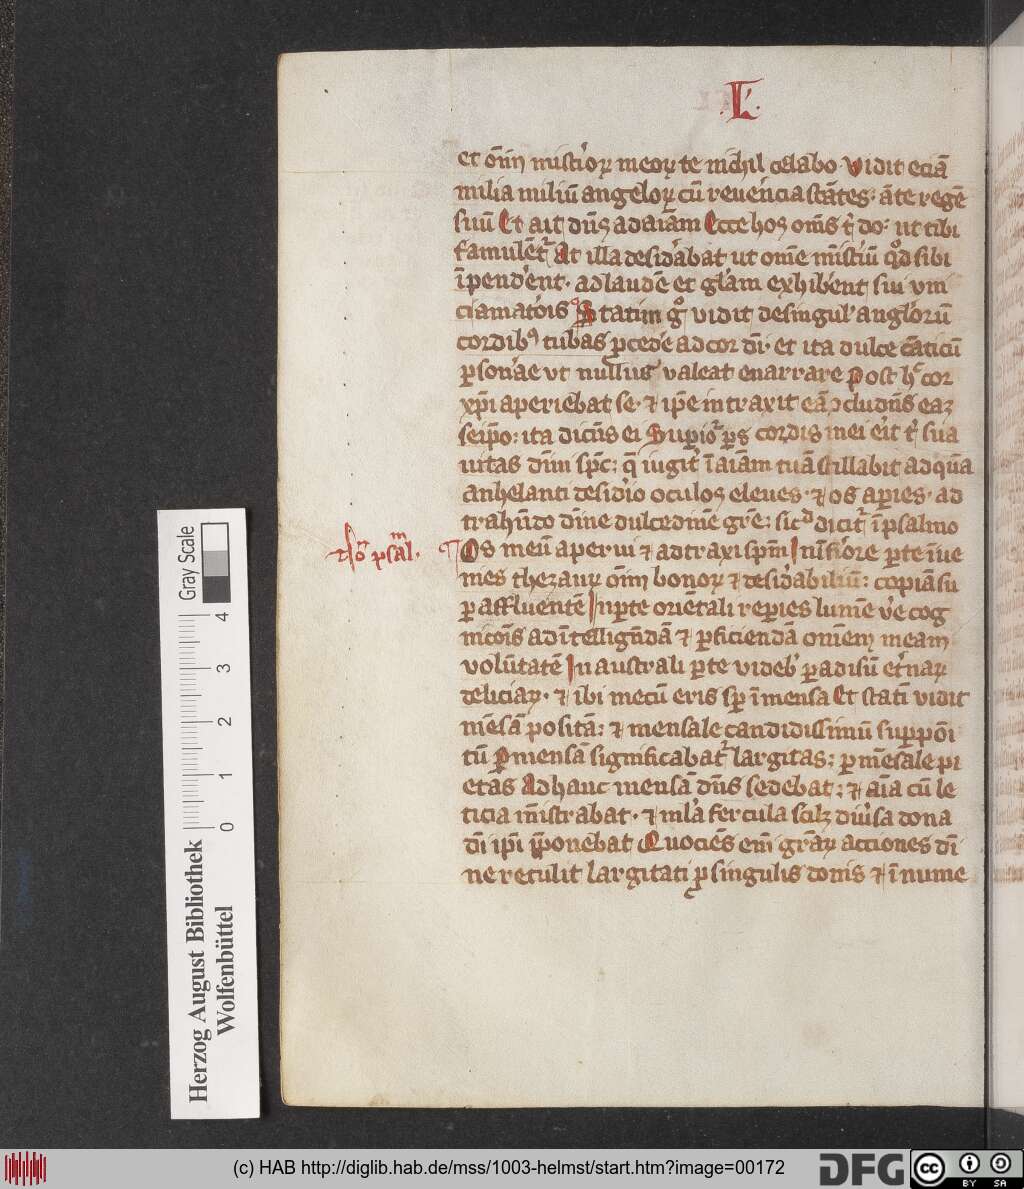 .L.
et om̄iū mist̓ioꝝ meoꝝ te nichil celabo vidit eciā
milia miliū angeloꝝ cū reuerēcia stātes· āte regē
suū Et ait dn̄s ad aīam Ecce hos om̄s t̓ do: ut tibi
famulēt̓ At illa desid̓abat ut om̄e mīst̓iū qd̓ sibi
īpend̓ent· ad laudē et gl̓iam exhib̓ent siu
Statim gͦ vidit de singul̓ angl̓oꝝ
cordibꝰ tubas ꝑced̓e ad cor dī· et ita dulce cāticū
ꝑsonāe vt nullus valeat enarrare Post hͨ cor
xp̄i aperiebat se· ⁊ ip̄e intraxit eā ↄcludēs eaꝫ
seip̄o: ita dicēs ei Supioꝛ ꝑs cordis mei eīt t̓ sua
uitas dīni sp̄c: q̄ iugit̓ ī aīam tuā stillabit ad quā
anhelanti desid̓io oculos eleues· ⁊ os aꝑies· ad
trahēdo diuīe dulcedinē gr̄e: sicᵈ dicit̓ ī psalmo
⁊ſoͬ pſal̄m·
¶ Os meū aperui ⁊ adtraxi sp̄m In īfīore ꝑte īue
nies thezauꝝ om̄iū bonoꝝ ⁊ desid̓abiliū: copiā su
ꝑ affluentē In ꝑte oriētali reꝑies lumē v̓e cog
nicōis ad ītelligēdā ⁊ ꝑficiendā om̄em meam
volūtatē In australi ꝑte videb̓ paradisū et̓naꝝ
deliciaꝝ· ⁊ ibi mecū eris sꝑ ī mensa Et statī vidit
mēsā positā: ⁊ mensale candidissimū suꝑpōi
tū Per mensā significabat̓ largitas: ꝑ mēsale pi
etas Ad hanc mensā dn̄s sedebat: ⁊ aīā cū le
ticia mīstrabat· ⁊ ml̓a fercula scilꝫ diu̓sa dona
dī ip̄i ꝓponebat Quociēs em̄ gr̄aꝝ acciones dī
ne retulit largitati ꝓ singulis donis ⁊ ī nume
Herzog August Bibliothek
Wolfenbüttel
0 1 2 3 4
Gray Scale
(c) HAB http://diglib.hab.de/mss/1003-helmst/start.htm?image=00172
DFG
cc BY SA